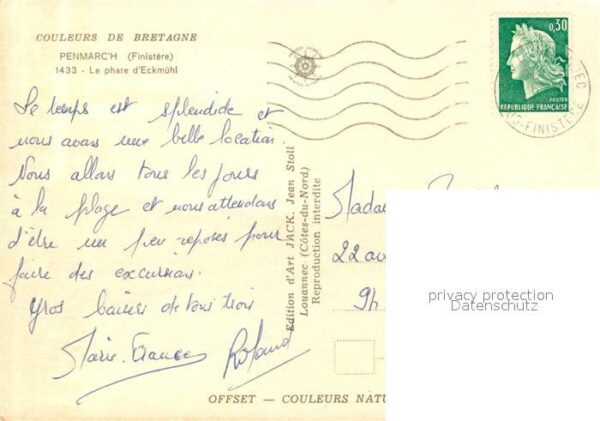 COULEURS DE BRETAGNE
PENMARC'H (Finistère)
1433 - Le phare d'Eckmühl
Le temps est splendide et
nous avons une belle location.
Nous allons tous les jours
à la plage et nous attendons
d'être un peu reposés pour
faire des excursions.
Gros baisers de tous trois
Marie-France Roland
Edition d'Art JACK, Jean Stoll
Louannec (Côtes-du-Nord)
Reproduction interdite
0,30
POSTES
REPUBLIQUE FRANÇAISE
FINISTERE
Madame
22 av
9h
privacy protection
Datenschutz
OFFSET — COULEURS NATU